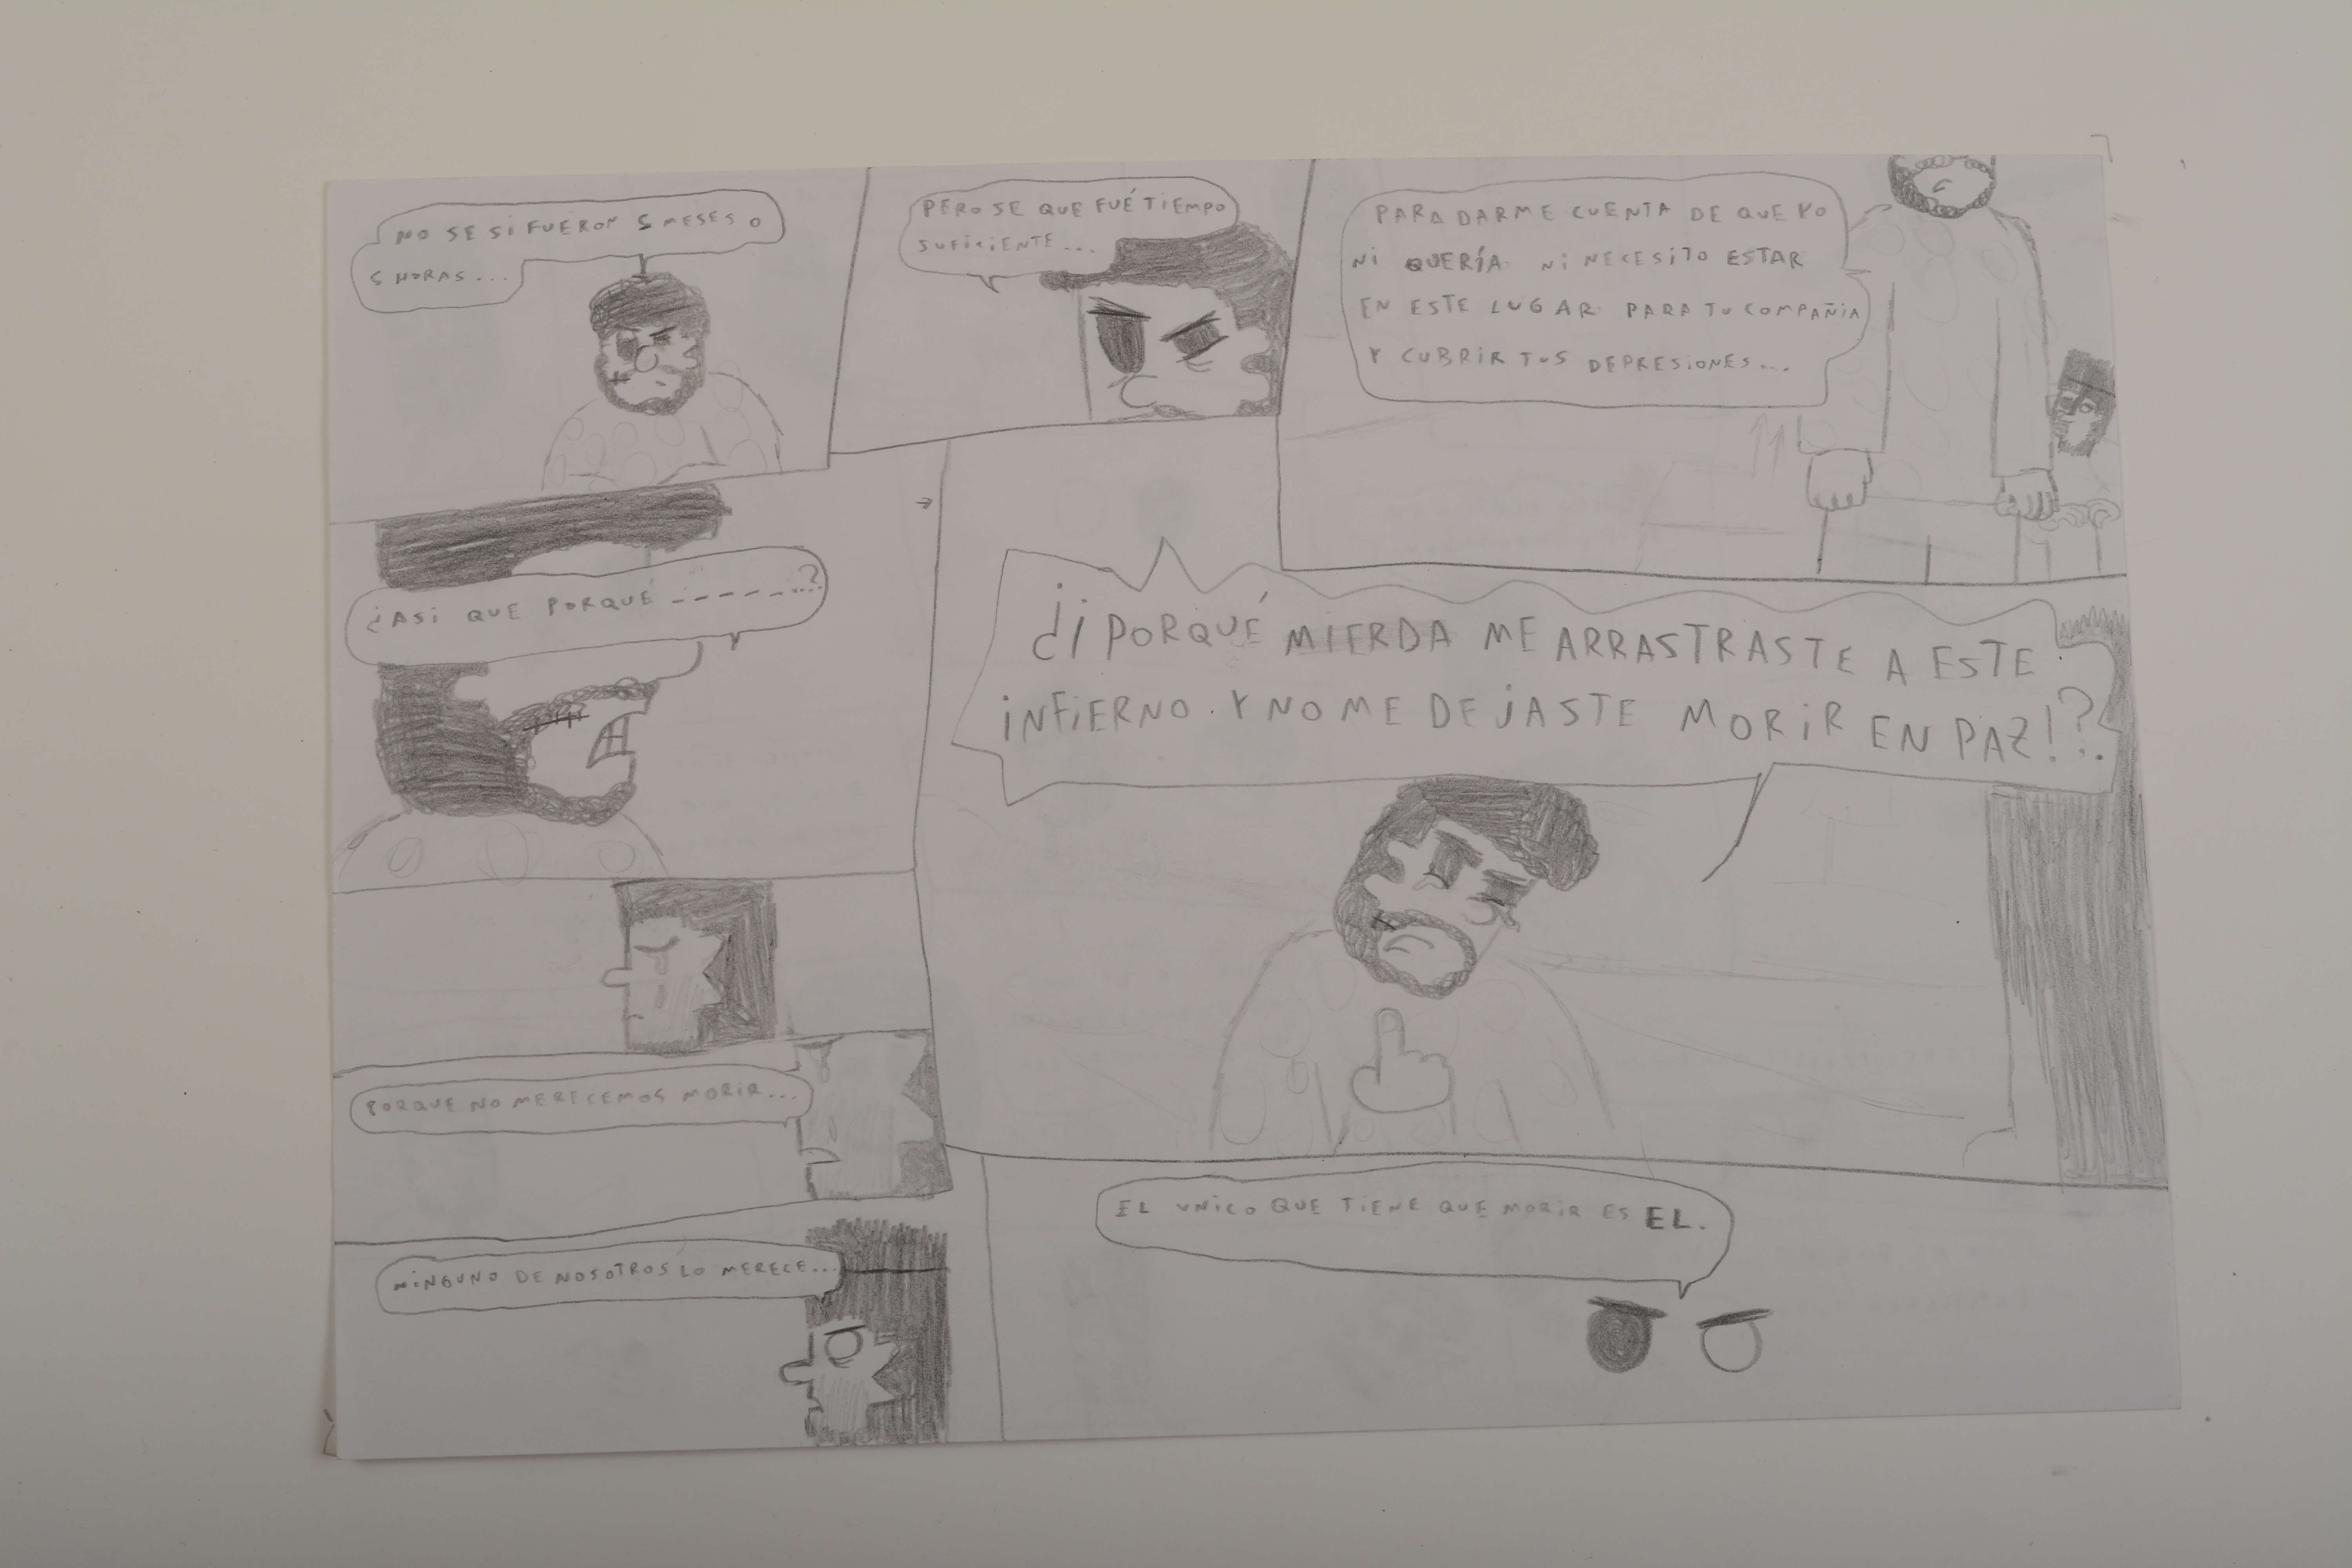 NO SE SI FUERON 5 MESES O
5 HORAS...
PERO SE QUE FUÉ TIEMPO
SUFICIENTE...
PARA DARME CUENTA DE QUE YO
NI QUERÍA NI NECESITO ESTAR
EN ESTE LUGAR PARA TU COMPAÑIA
Y CUBRIR TUS DEPRESIONES...
¿ASI QUE PORQUÉ -------...?
¿¡PORQUÉ MIERDA ME ARRASTRASTE A ESTE
INFIERNO Y NO ME DEJASTE MORIR EN PAZ!?.
PORQUE NO MERECEMOS MORIR...
NINGUNO DE NOSOTROS LO MERECE...
EL UNICO QUE TIENE QUE MORIR ES EL.